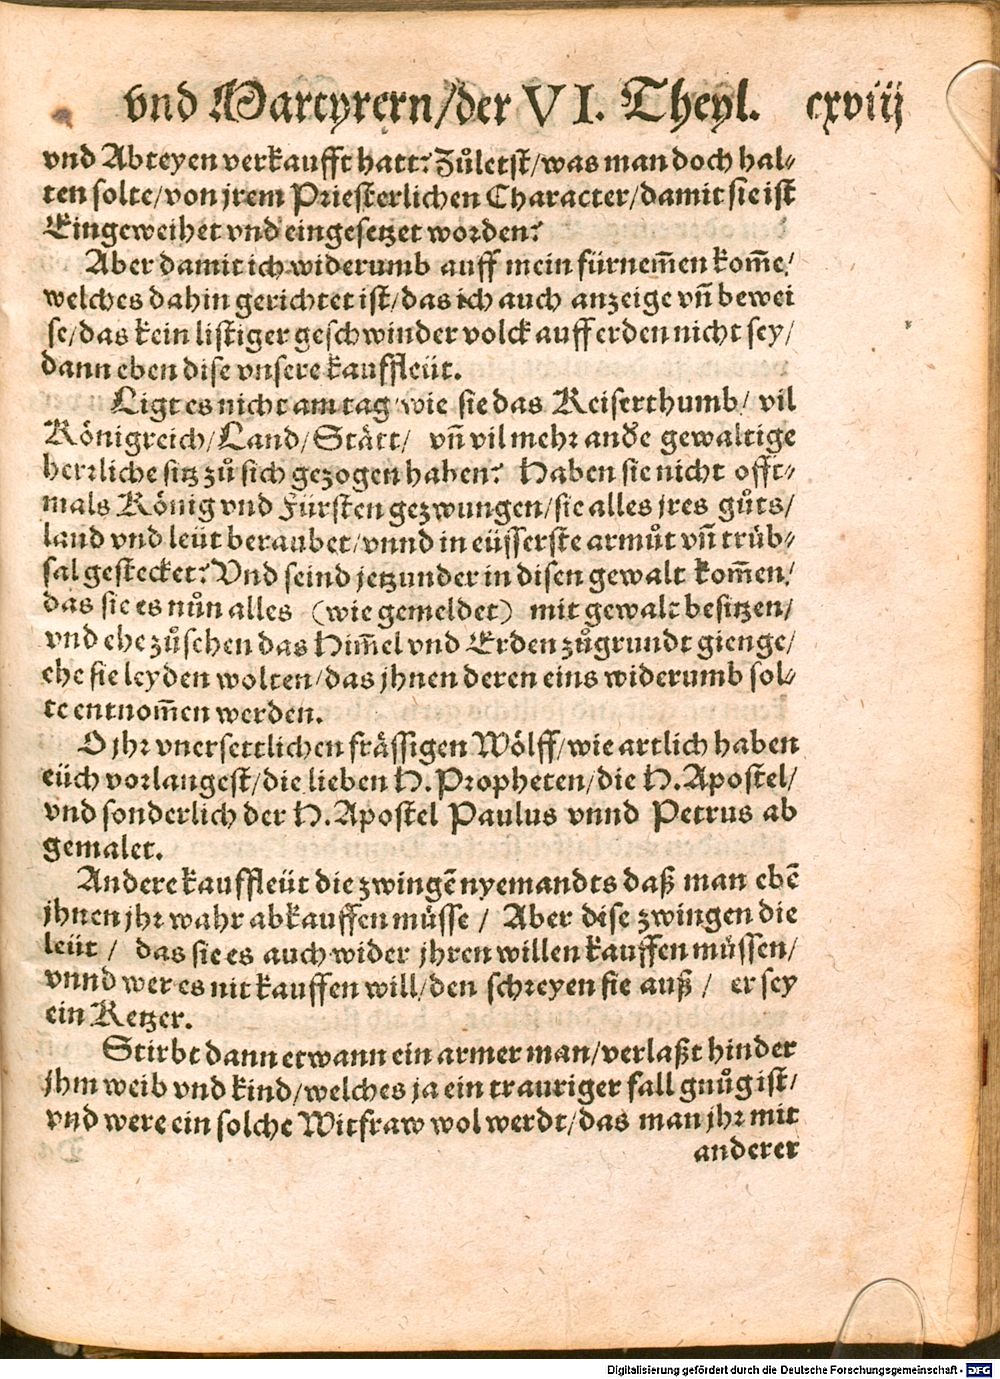 vnd Martyrern/der VI. Theyl. cxviij
vnd Abteyen verkaufft hatt? Zůletst/was man doch hal⸗
ten solte/von jrem Priesterlichen Character/damit sie ist
Eingeweihet vnd eingesetzet worden?
Aber damit ich widerumb auff mein fürnem̃en kom̃e/
welches dahin gerichtet ist/das ich auch anzeige vñ bewei
se/das kein listiger geschwinder volck auff erden nicht sey/
dann eben dise vnsere kauffleüt.
Ligt es nicht am tag wie sie das Keiserthumb/ vil
Königreich/Land/Stätt/ vñ vil mehr anđe gewaltige
herrliche sitz zů sich gezogen haben? Haben sie nicht offt⸗
mals König vnd Fürsten gezwungen/sie alles jres gůts/
land vnd leüt beraubet/vnnd in eüsserste armůt vñ trüb⸗
sal gestecket? Vnd seind jetzunder in disen gewalt kom̃en/
das sie es nůn alles (wie gemeldet) mit gewalt besitzen/
vnd ehe zůsehen das Him̃el vnd Erden zůgrundt gienge/
ehe sie leyden wolten/das jhnen deren eins widerumb sol⸗
te entnom̃en werden.
O jhr vnersettlichen frässigen Wölff/wie artlich haben
eüch vorlangest/die lieben H. Propheten/die H. Apostel/
vnd sonderlich der H. Apostel Paulus vnnd Petrus ab
gemalet.
Andere kauffleüt die zwingẽ nyemandts daß man ebẽ
jhnen jhr wahr abkauffen müsse / Aber dise zwingen die
leüt / das sie es auch wider jhren willen kauffen müssen/
vnnd wer es nit kauffen will/den schreyen sie auß / er sey
ein Ketzer.
Stirbt dann etwann ein armer man/verlaßt hinder
jhm weib vnd kind/welches ja ein trauriger fall gnůg ist/
vnd were ein solche Witfraw wol werdt/das man jhr mit
anderer
Digitalisierung gefördert durch die Deutsche Forschungsgemeinschaft - DFG